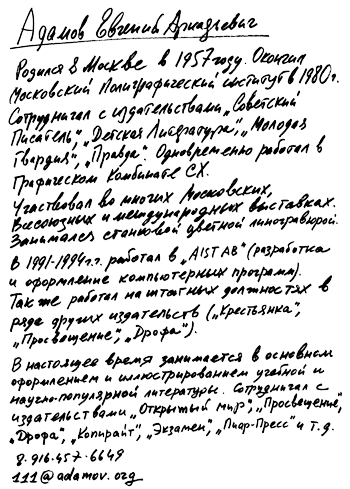 Адамов Евгений Аркадиевич
Родился в Москве в 1957 году. Окончил
Московский Полиграфический институт в 1980г.
Сотрудничал с издательствами „Советский
Писатель", „Детская Литература", „Молодая
Гвардия", „Правда". Одновременно работал в
Графическом Комбинате СХ.
Участвовал во многих Московских,
Всесоюзных и международных выставках.
Занимался станковой цветной линогравюрой.
В 1991-1994г.г. работал в „AIST AB" (разработка
и оформление компьютерных программ).
Так же работал на штатных должностях в
ряде других издательств („Крестьянка",
„Просвещение", „Дрофа").
В настоящее время занимается в основном
оформлением и иллюстрированием учебной и
научно-популярной литературы. Сотрудничал с
издательствами „Открытый мир", „Просвещение",
„Дрофа", „Копирайт", „Экзамен", „Пиар-Пресс" и т.д.
8-916-457-6649
111@adamov.org